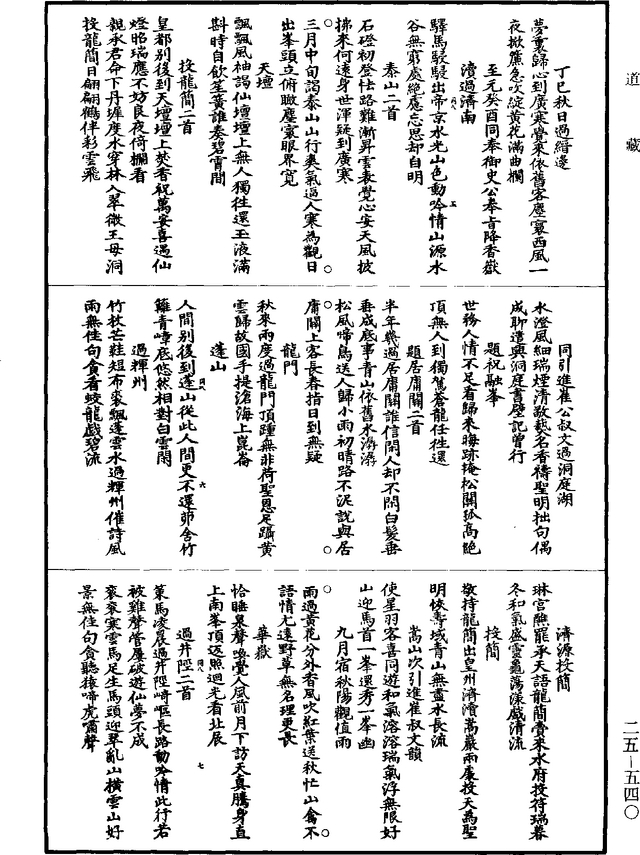 道藏
丁巳秋日過縉邊
夢裏歸心到廣寒覺來依舊客塵寰西風一
夜掀簾急吹綻黃花滿曲欄
至元癸酉同奉御史公奉旨降香嶽
瀆過濟南
驛馬駸駸出帝京水光山色動吟情山源水
谷無窮處絶慮忘思却自明
泰山二首
石磴初登仕路難漸昇雲表覺心安天風披
拂來何遠身世渾疑到廣寒
三月中旬謁泰山山行爽氣逼人寒為觀日
出峯頭立俯瞰塵寰眼界寬
天壇
飄飄風袖謁仙壇壇上無人獨往還玉液滿
斟時自飲笙簧誰奏碧霄間
投龍簡二首
皇都別後到天壇壇上焚香祝萬安喜遇仙
燈昭瑞應不妨良夜倚欄看
親承君命下丹墀度水穿林入翠微王母洞
投龍簡日翩翩鶴伴彩雲飛
同引進崔公叔文過洞庭湖
水澄風細瑞煙清敬爇名香禱聖明拙句偶
成聊遣興洞庭書壁記曾行
題祝融峯
世務人情不足看歸來晦跡掩松關孤高絶
頂無人到獨駕蒼龍任往還
題居庸關二首
半年幾過居庸關誰信閑人却不閑白髮垂
垂成底事青山依舊水潺潺
松風啼鳥送人歸小雨初晴路不泥說與居
庸關上客長春指日到無疑
龍門
秋來兩度過龍門頂踵無非荷聖恩足躡黃
雲歸故國手提滄海上崑崙
蓬山
人間別後到蓬山從此人間更不還茆舍竹
籬青嶂底悠然相對白雲閑
過輝州
竹杖芒鞋短布裘飄蓬雲水過輝州催詩風
雨無佳句貪看蛟龍戲碧流
濟源投簡
琳宮醮罷承天語龍簡賫來水府投符瑞暮
冬和氣盛靈龜蕩漾戲清流
投簡
敬持龍簡出皇州濟瀆嵩巖兩處投天為聖
明恢壽域青山無盡水長流
嵩山次引進崔叔文韻
使星羽客喜同遊和氣溶溶瑞氣浮無限好
山迎馬首一峯還秀一峯幽
九月宿秋陽觀值雨
雨過黃花分外香風吹紅葉送秋忙山禽不
語情尤遠野草無名理更長
華嶽
恰睡臯聲喚覺人風前月下訪天真騰身直
上南峯頂迴照迴光看北展
過井陘二首
策馬凌晨過井陘崎嶇長路動吟情此行若
被雞聲管屢破遊仙夢不成
衮衮寒雲馬足生馬頭迎翠亂山橫雲山好
景無佳句貪聽猿啼虎嘯聲
二五—五四〇